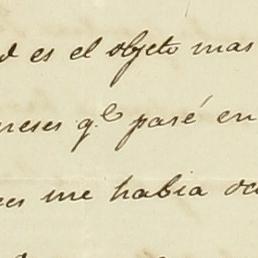 es el objeto mas
meses q.e pasé en
me habia